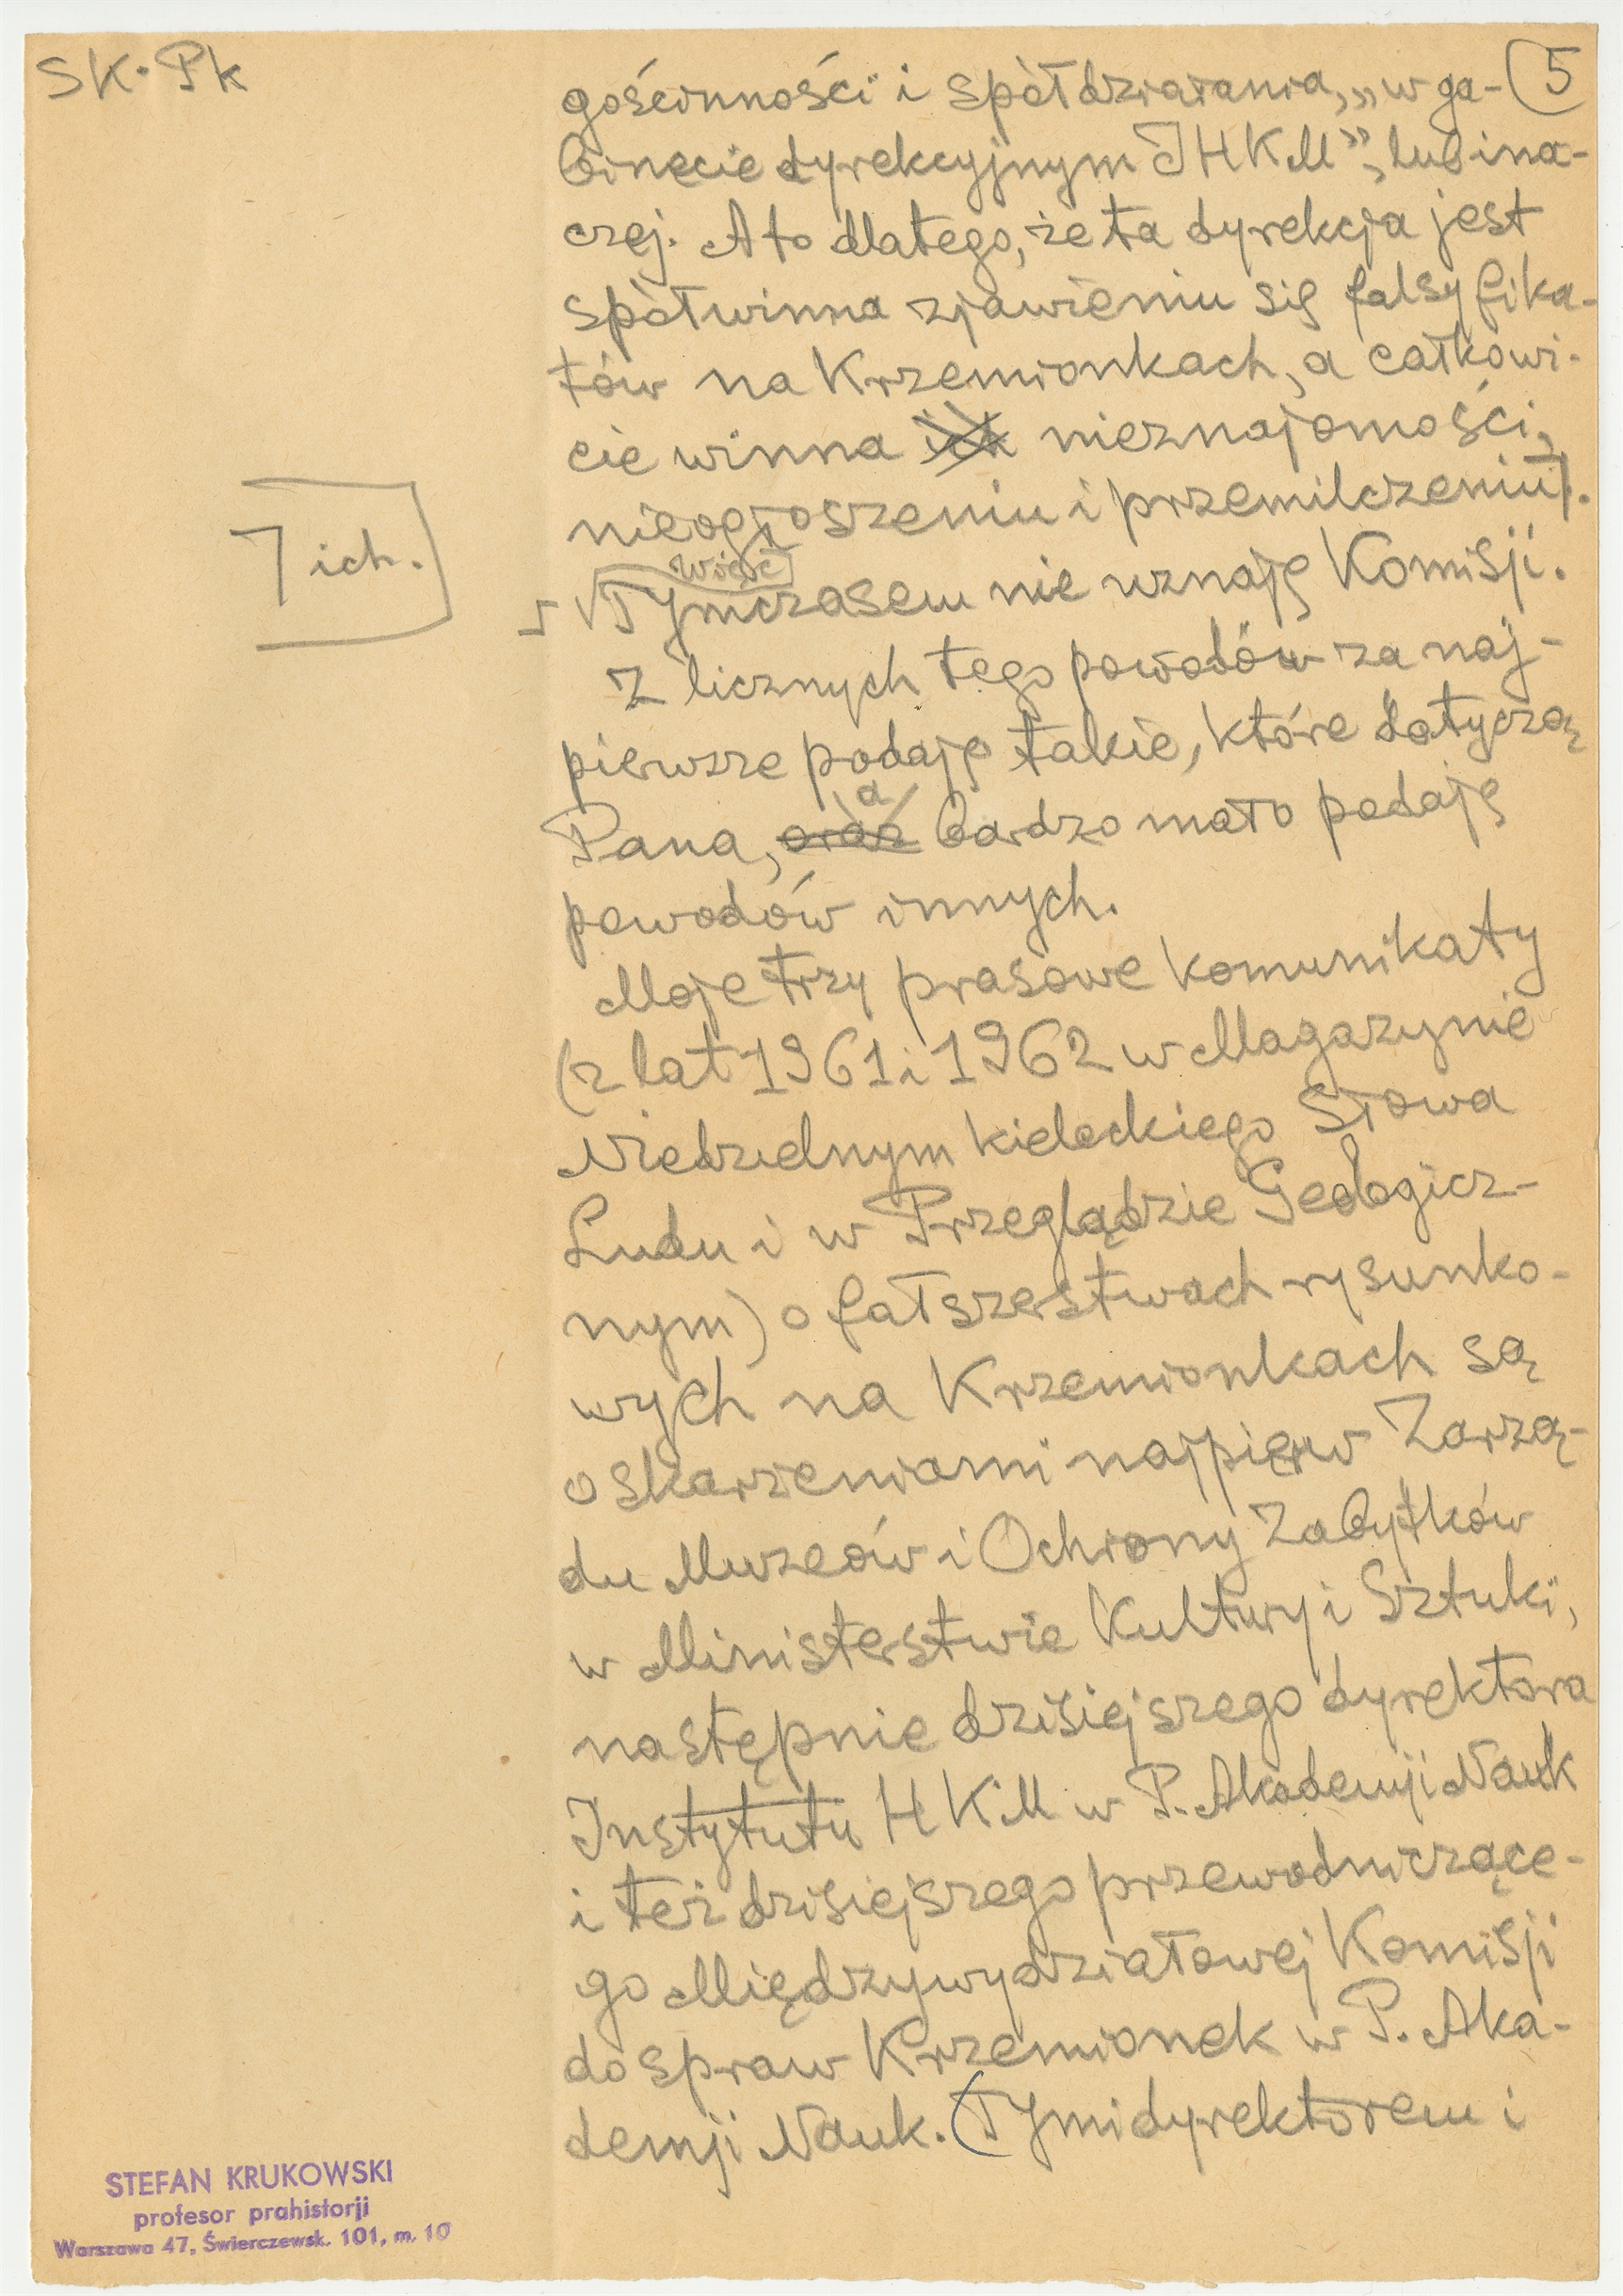 SK. Pk
5
gościnności i spółdziałania, „w ga-
binecie dyrekcyjnym IHKM”, lub ina-
czej. A to dlatego, że ta dyrekcja jest
spółwinna zjawieniu się falsyfika-
tów na Krzemionkach, a całkowi-
cie winna ich nieznajomości,
nieogłoszeniu i przemilczeniu.
ich.
więc
Tymczasem nie uznaję Komisji.
Z licznych tego powodów za naj-
pierwsze podaję takie, które dotyczą
a
Pana, oraz bardzo mało podaję
powodów innych.
Moje trzy prasowe komunikaty
(z lat 1961 i 1962 w Magazynie
Niedzielnym kieleckiego Słowa
Ludu i w Przeglądzie Geologicz-
nym) o fałszerstwach rysunko-
wych na Krzemionkach są
oskarżeniami najpierw Zarzą-
du Muzeów i Ochrony Zabytków
w Ministerstwie Kultury i Sztuki,
następnie dzisiejszego dyrektora
Instytutu HKM w P. Akademji Nauk
i też dzisiejszego przewodniczące-
go Międzywydziałowej Komisji
do spraw Krzemionek w P. Aka-
demji Nauk. (Tymi dyrektorem i
STEFAN KRUKOWSKI
profesor prahistorji
Warszawa 47, Świerczewsk. 101, m. 10